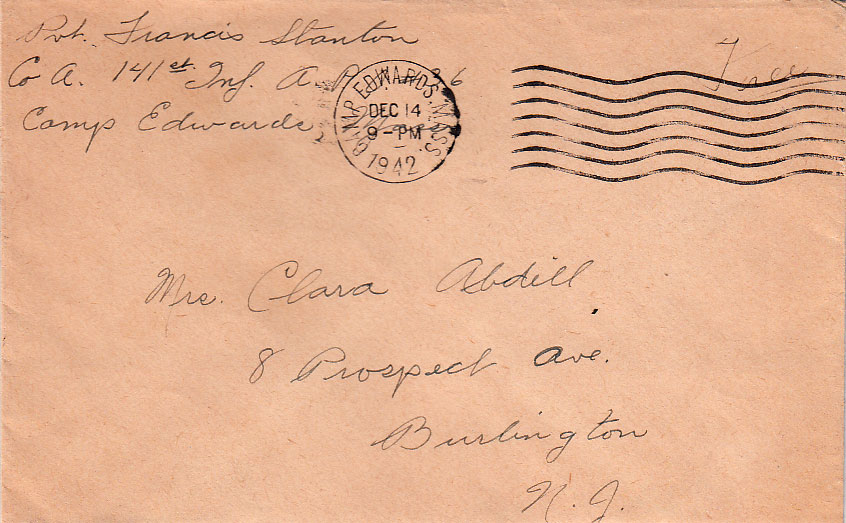 Pvt. Francis Stanton
Free
Co A. 141st Inf. A. P. 36
Camp Edwards Mass.
CAMP EDWARDS, MASS.
DEC 14
9 - PM
1942
Mrs. Clara Abdill
8 Prospect Ave.
Burlington
N. J.